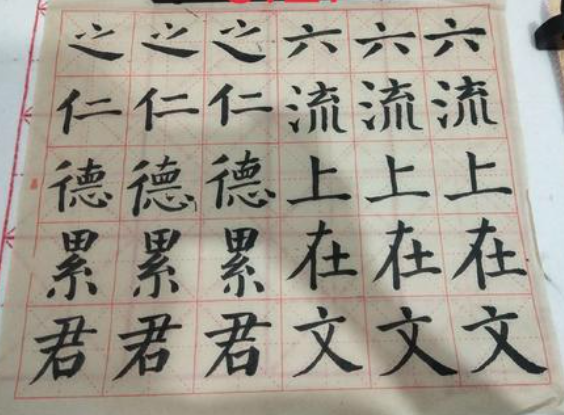 之之之六六六
仁仁仁流流流
德德德上上上
累累累在在在
君君君文文文